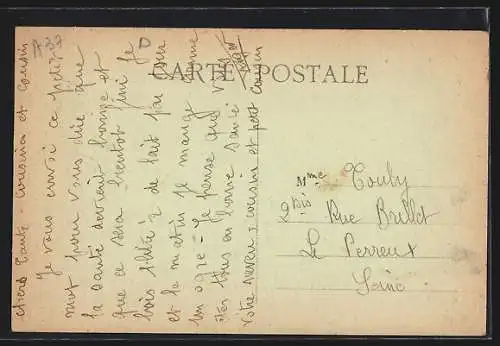 CARTE POSTALE
chers Tante - cousins et cousin
Je vous envoi ce petit
mot pour vous dire que
la santé devient bonne et
que ce sera bientot fini Je
bois litre de lait par jour
et le matin je mange comme
un ogre - Je pense que vous
êtes tous en bonne santé
votre neveu cousin et petit cousin
Mme Touby
2 bis Rue Brillet
Le Perreux
Seine